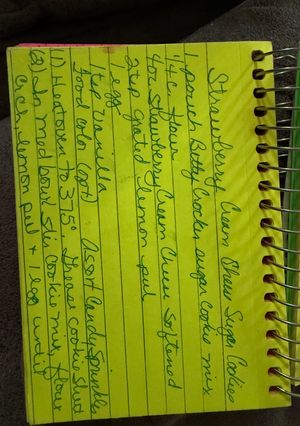 Strawberry Cream Cheese Sugar Cookies
1 pouch Betty Crocker sugar cookie mix
1/4 c flour
4 oz strawberry Cream Cheese softened
2 tsp grated lemon peel
1 egg
1 tsp vanilla
food color (opt) Assort Candy Sprinkles
(1) Heat oven to 375° Grease cookie sheet
(2) In med bowl stir cookie mix, flour
Crch, lemon peel + 1 egg until